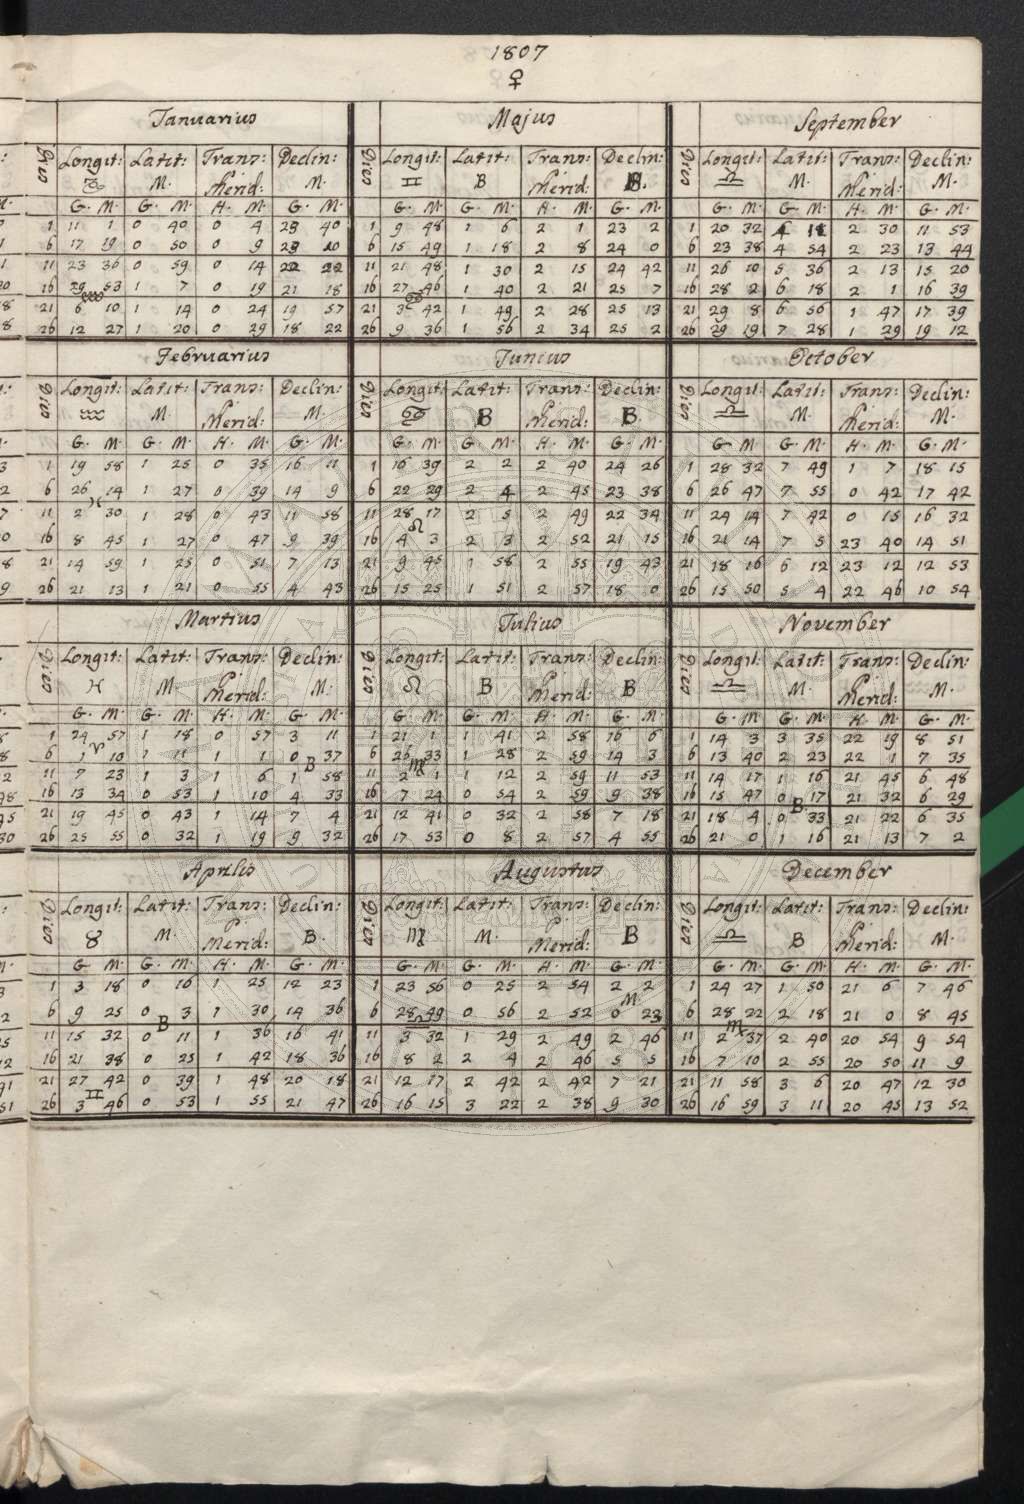 1807
♀
Januarius
Dies Longit: Latit: Trans: Declin:
♑ M. P Merid: M.
G. M. G. M. H. M. G. M.
1 11 1 0 40 0 4 23 40
6 17 19 0 50 0 9 23 10
11 23 36 0 59 0 14 22 22
16 29 53 1 7 0 19 21 18
♒
21 6 10 1 14 0 24 19 57
26 12 27 1 20 0 29 18 22
Februarius
Dies Longit: Latit: Trans: Declin:
♒ M. P Merid: M.
G. M. G. M. H. M. G. M.
1 19 58 1 25 0 35 16 11
6 26 14 1 27 0 39 14 9
♓
11 2 30 1 28 0 43 11 58
16 8 45 1 27 0 47 9 39
21 14 59 1 25 0 51 7 13
26 21 13 1 21 0 55 4 43
Martius
Dies Longit: Latit: Trans: Declin:
♓ M. P Merid: M:
G. M. G. M. H. M. G. M.
1 24 57 1 18 0 57 3 11
6 1 10 1 11 1 1 0 37
♈ B
11 7 23 1 3 1 6 1 58
16 13 34 0 53 1 10 4 33
21 19 45 0 43 1 14 7 4
26 25 55 0 32 1 19 9 32
Aprilis
Dies Longit: Latit: Trans: Declin:
♉ M. P. Merid: B.
G M. G. M. H. M. G. M.
1 3 18 0 16 1 25 12 23
6 9 25 0 3 1 30 14 36
B
11 15 32 0 11 1 36 16 41
16 21 38 0 25 1 42 18 36
21 27 42 0 39 1 48 20 18
♊
26 3 46 0 53 1 55 21 47
Majus
Dies Longit: Latit: Trans: Declin:
♊ B P Merid: B.
G. M. G. M. H. M. G. M.
1 9 48 1 6 2 1 23 2
6 15 49 1 18 2 8 24 0
11 21 48 1 30 2 15 24 42
16 27 46 1 40 2 21 25 7
♋
21 3 42 1 49 2 28 25 13
26 9 36 1 56 2 34 25 2
Junius
Dies Longit: Latit: Trans: Declin:
♋ B P Merid: B.
G. M. G. M. H. M. G. M.
1 16 39 2 2 2 40 24 26
6 22 29 2 4 2 45 23 38
11 28 17 2 5 2 49 22 34
♌
16 4 3 2 3 2 52 21 15
21 9 45 1 58 2 55 19 43
26 15 25 1 51 2 57 18 0
Julius
Dies Longit: Latit: Trans: Declin:
♌ B P Merid: B
G. M. G. M. H. M. G. M.
1 21 1 1 41 2 58 16 6
6 26 33 1 28 2 59 14 3
♍
11 2 1 1 12 2 59 11 53
16 7 24 0 54 2 59 9 38
21 12 41 0 32 2 58 7 18
26 17 53 0 8 2 57 4 55
Augustus
Dies Longit: Latit: Trans: Declin:
♍ M. P. Merid: B
G. M. G. M. H. M. G. M.
1 23 56 0 25 2 54 2 2
M.
6 28 49 0 56 2 52 0 23
♎
11 3 32 1 29 2 49 2 46
16 8 2 2 4 2 46 5 5
21 12 17 2 42 2 42 7 21
26 16 15 3 22 2 38 9 30
September
Dies Longit: Latit: Trans: Declin:
♎ M. P Merid: M.
G. M. G. M. H. M. G. M.
1 20 32 4 18 2 30 11 53
6 23 38 4 54 2 23 13 44
11 26 10 5 36 2 13 15 20
16 28 2 6 18 2 1 16 39
21 29 8 6 56 1 47 17 39
26 29 19 7 28 1 29 19 12
October
Dies Longit: Latit: Trans: Declin:
♎ M. P Merid: M.
G. M G. M. H. M. G. M.
1 28 32 7 49 1 7 18 15
6 26 47 7 55 0 42 17 42
11 24 14 7 42 0 15 16 32
16 21 14 7 5 23 40 14 51
21 18 16 6 12 23 12 12 53
26 15 50 5 4 22 46 10 54
November
Dies Longit: Latit: Trans: Declin:
♎ M. P Merid: M.
G. M G. M. H. M. G. M.
1 14 3 3 35 22 19 8 51
6 13 40 2 23 22 1 7 35
11 14 17 1 16 21 45 6 48
16 15 47 0 17 21 32 6 29
B.
21 18 4 0 33 21 22 6 35
26 21 0 1 16 21 13 7 2
December
Dies Longit: Latit: Trans: Declin:
♎ B P Merid: M.
G. M G. M. H. M. G. M.
1 24 27 1 50 21 6 7 46
6 28 22 2 18 21 0 8 45
♏
11 2 37 2 40 20 54 9 54
16 7 10 2 55 20 50 11 9
21 11 58 3 6 20 47 12 30
26 16 59 3 11 20 45 13 52